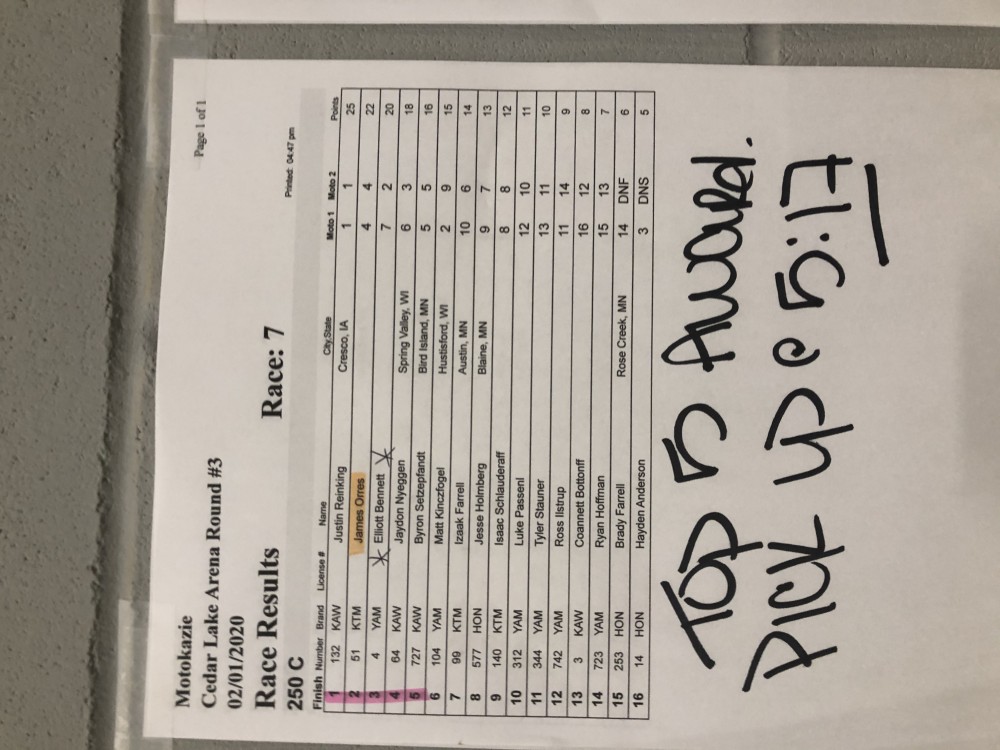 Motokazie
Cedar Lake Arena Round #3
02/01/2020
Page 1 of 1
Race Results Race: 7
250 C
Printed: 04:47 pm
Finish Number Brand License # Name City,State Moto 1 Moto 2 Points
1 132 KAW Justin Reinking Cresco, IA 1 1 25
2 51 KTM James Orres 4 4 22
3 4 YAM Elliott Bennett 7 2 20
4 64 KAW Jaydon Nyeggen Spring Valley, WI 6 3 18
5 727 KAW Byron Setzepfandt Bird Island, MN 5 5 16
6 104 YAM Matt Kinczfogel Hustisford, WI 2 9 15
7 99 KTM Izaak Farrell Austin, MN 10 6 14
8 577 HON Jesse Holmberg Blaine, MN 9 7 13
9 140 KTM Isaac Schlauderaff 8 8 12
10 312 YAM Luke Passenl 12 10 11
11 344 YAM Tyler Stauner 13 11 10
12 742 YAM Ross Ilstrup 11 14 9
13 3 KAW Coannett Bottonff 16 12 8
14 723 YAM Ryan Hoffman 15 13 7
15 253 HON Brady Farrell Rose Creek, MN 14 DNF 6
16 14 HON Hayden Anderson 3 DNS 5
TOP 5 AWARD.
PICK UP @ 5:17